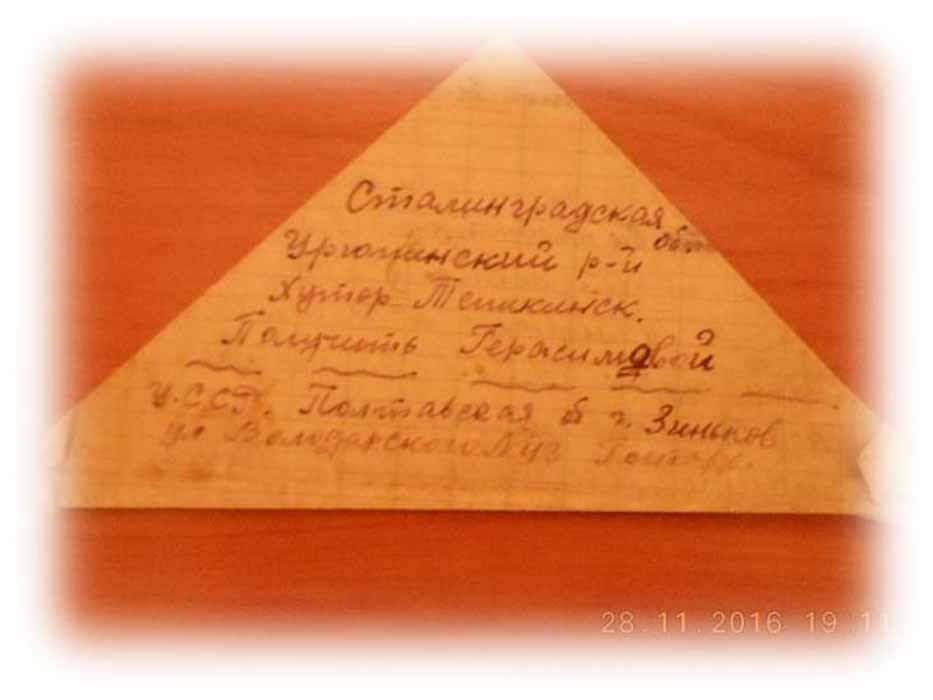 Сталинградская
обл
Урюпинский р-й
Хутор Тепикинск.
Получить Герасимовой
У.С.С.Р. Полтавская б г. Зиньков
ул Володарского №
28.11.2016 19:11